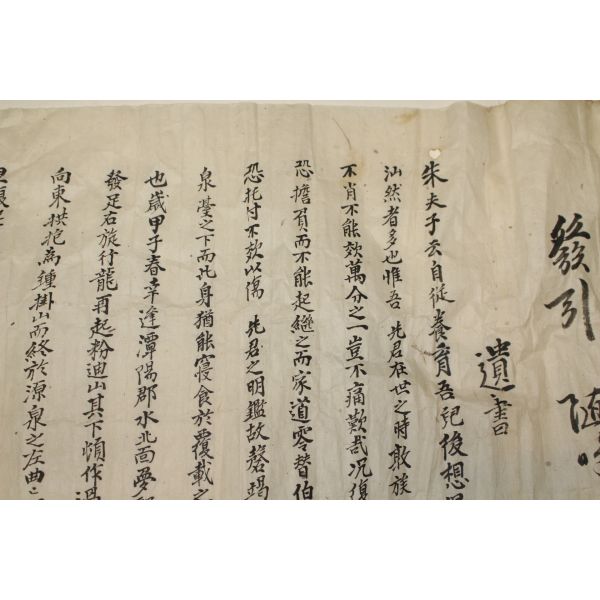 發引
遺書
朱夫子云自從養育吾兒後想
汕然者多也惟吾 先君在世之時敢族
不肖不能效萬分之一豈不痛歎哉况復
恐擔負而不能起繼之而家道零替伯
恐托付不效以傷 先君之明鑑故罄竭
泉臺之下而此身猶能寢食於覆載之
也歲甲子春幸逢潭陽郡水北面夢
發足右旋行龍再起粉迪山其下傾作
向東拱抱為鍾掛山而終於源泉之左曲